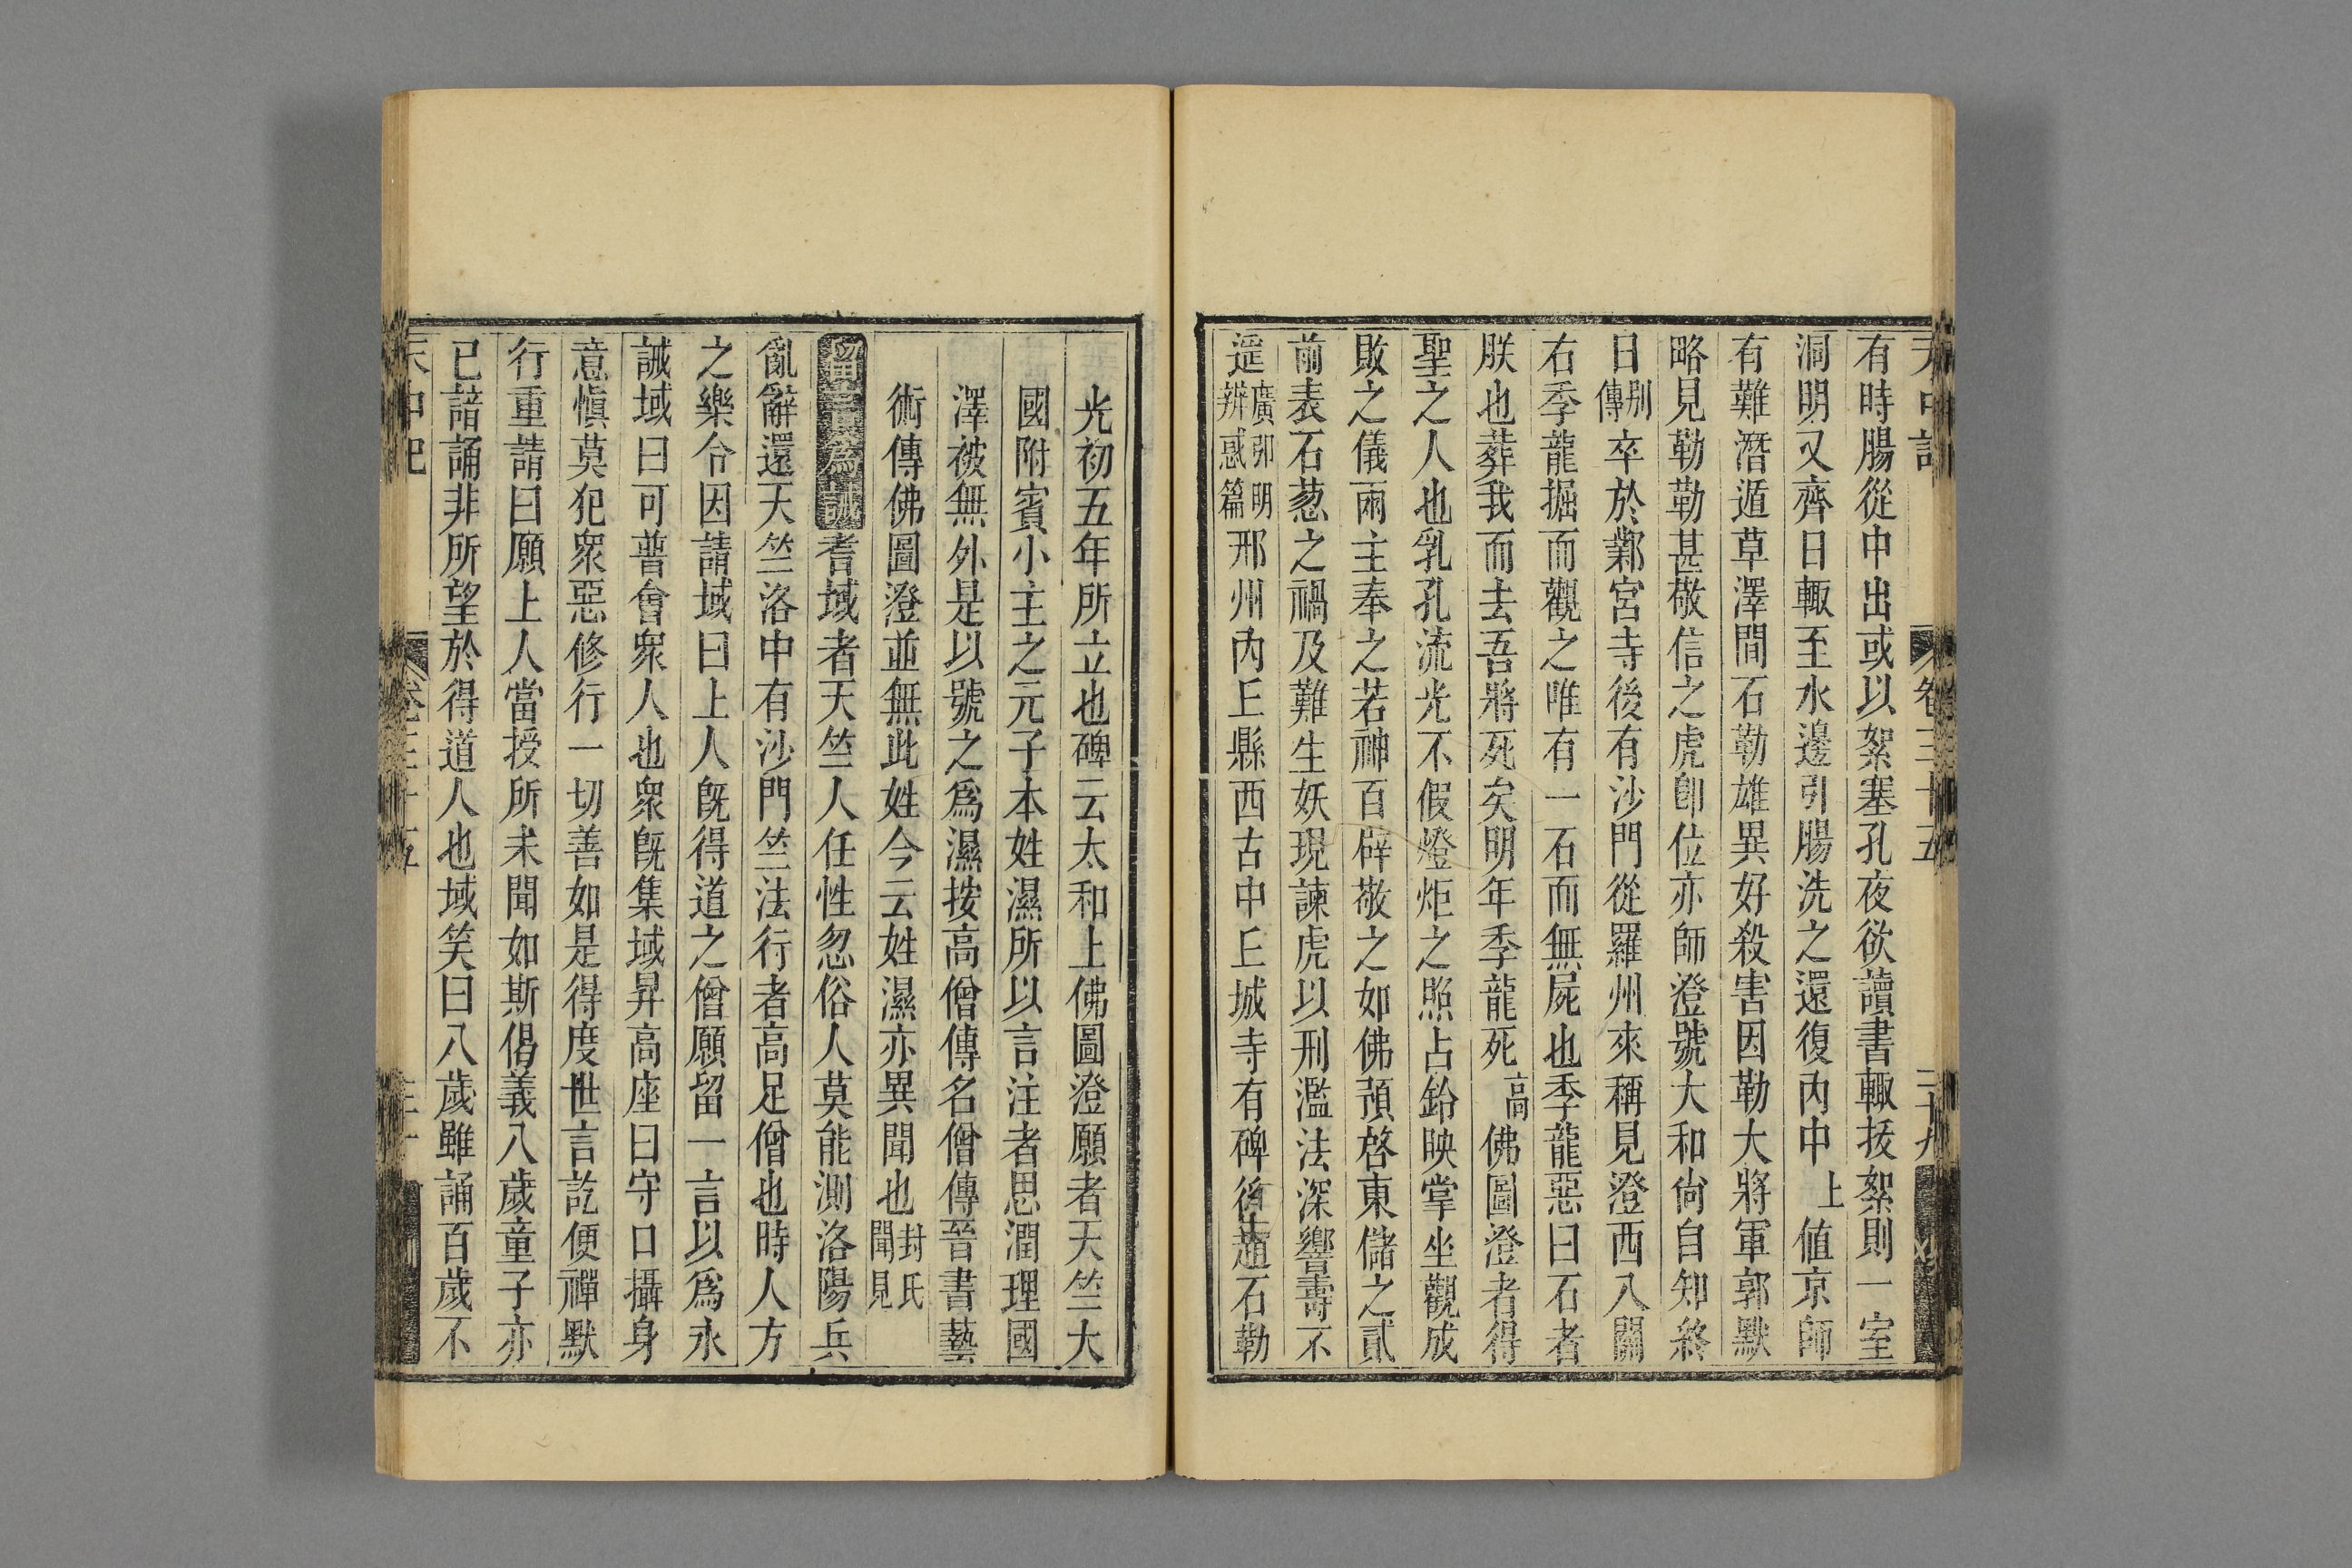 天中記 卷三十五 二十九
有時腸從中出或以絮塞孔夜欲讀書輙拔絮則一室
洞明又齊日輙至水邊引腸洗之還復內中上値京師
有難潛遁草澤間石勒雄異好殺害因勒大將軍郭默
略見勒勒甚敬信之虎卽位亦師澄號大和尙自知終
日别傳卒於鄴宮寺後有沙門從羅州來稱見澄西入關
右季龍掘而觀之唯有一石而無屍也季龍惡曰石者
朕也葬我而去吾將死矣明年季龍死高佛圖澄者得
聖之人也乳孔流光不假燈炬之照占鈴映掌坐觀成
敗之儀兩主奉之若神百辟敬之如佛預啓東儲之貳
前表石葱之禍及難生妖現諫虎以刑濫法深響壽不
遐廣卯明辨惑篇邢州內丘縣西古中丘城寺有碑後趙石勒
光初五年所立也碑云太和上佛圖澄願者天竺大
國附賓小主之元子本姓濕所以言注者思潤理國
澤被無外是以號之爲濕按高僧傳名僧傳晉書藝
術傳佛圖澄並無此姓今云姓濕亦異聞也封氏聞見
留言爲誡耆域者天竺人任性忽俗人莫能測洛陽兵
亂辭還天竺洛中有沙門竺法行者高足僧也時人方
之樂令因請域曰上人旣得道之僧願留一言以爲永
誡域曰可普會衆人也衆旣集域昇高座曰守口攝身
意愼莫犯衆惡修行一切善如是得度世言訖便禪默
行重請曰願上人當授所未聞如斯偈義八歲童子亦
已諳誦非所望於得道人也域笑曰八歲雖誦百歲不
天中記 卷三十五 三十